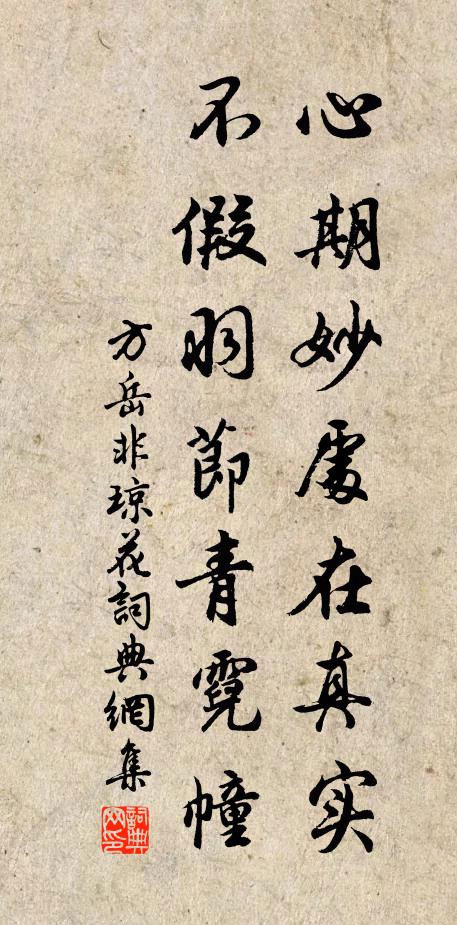 心期妙處在真实
不假羽節青霓幢
方岳非琼花詞典網集
詞典网印